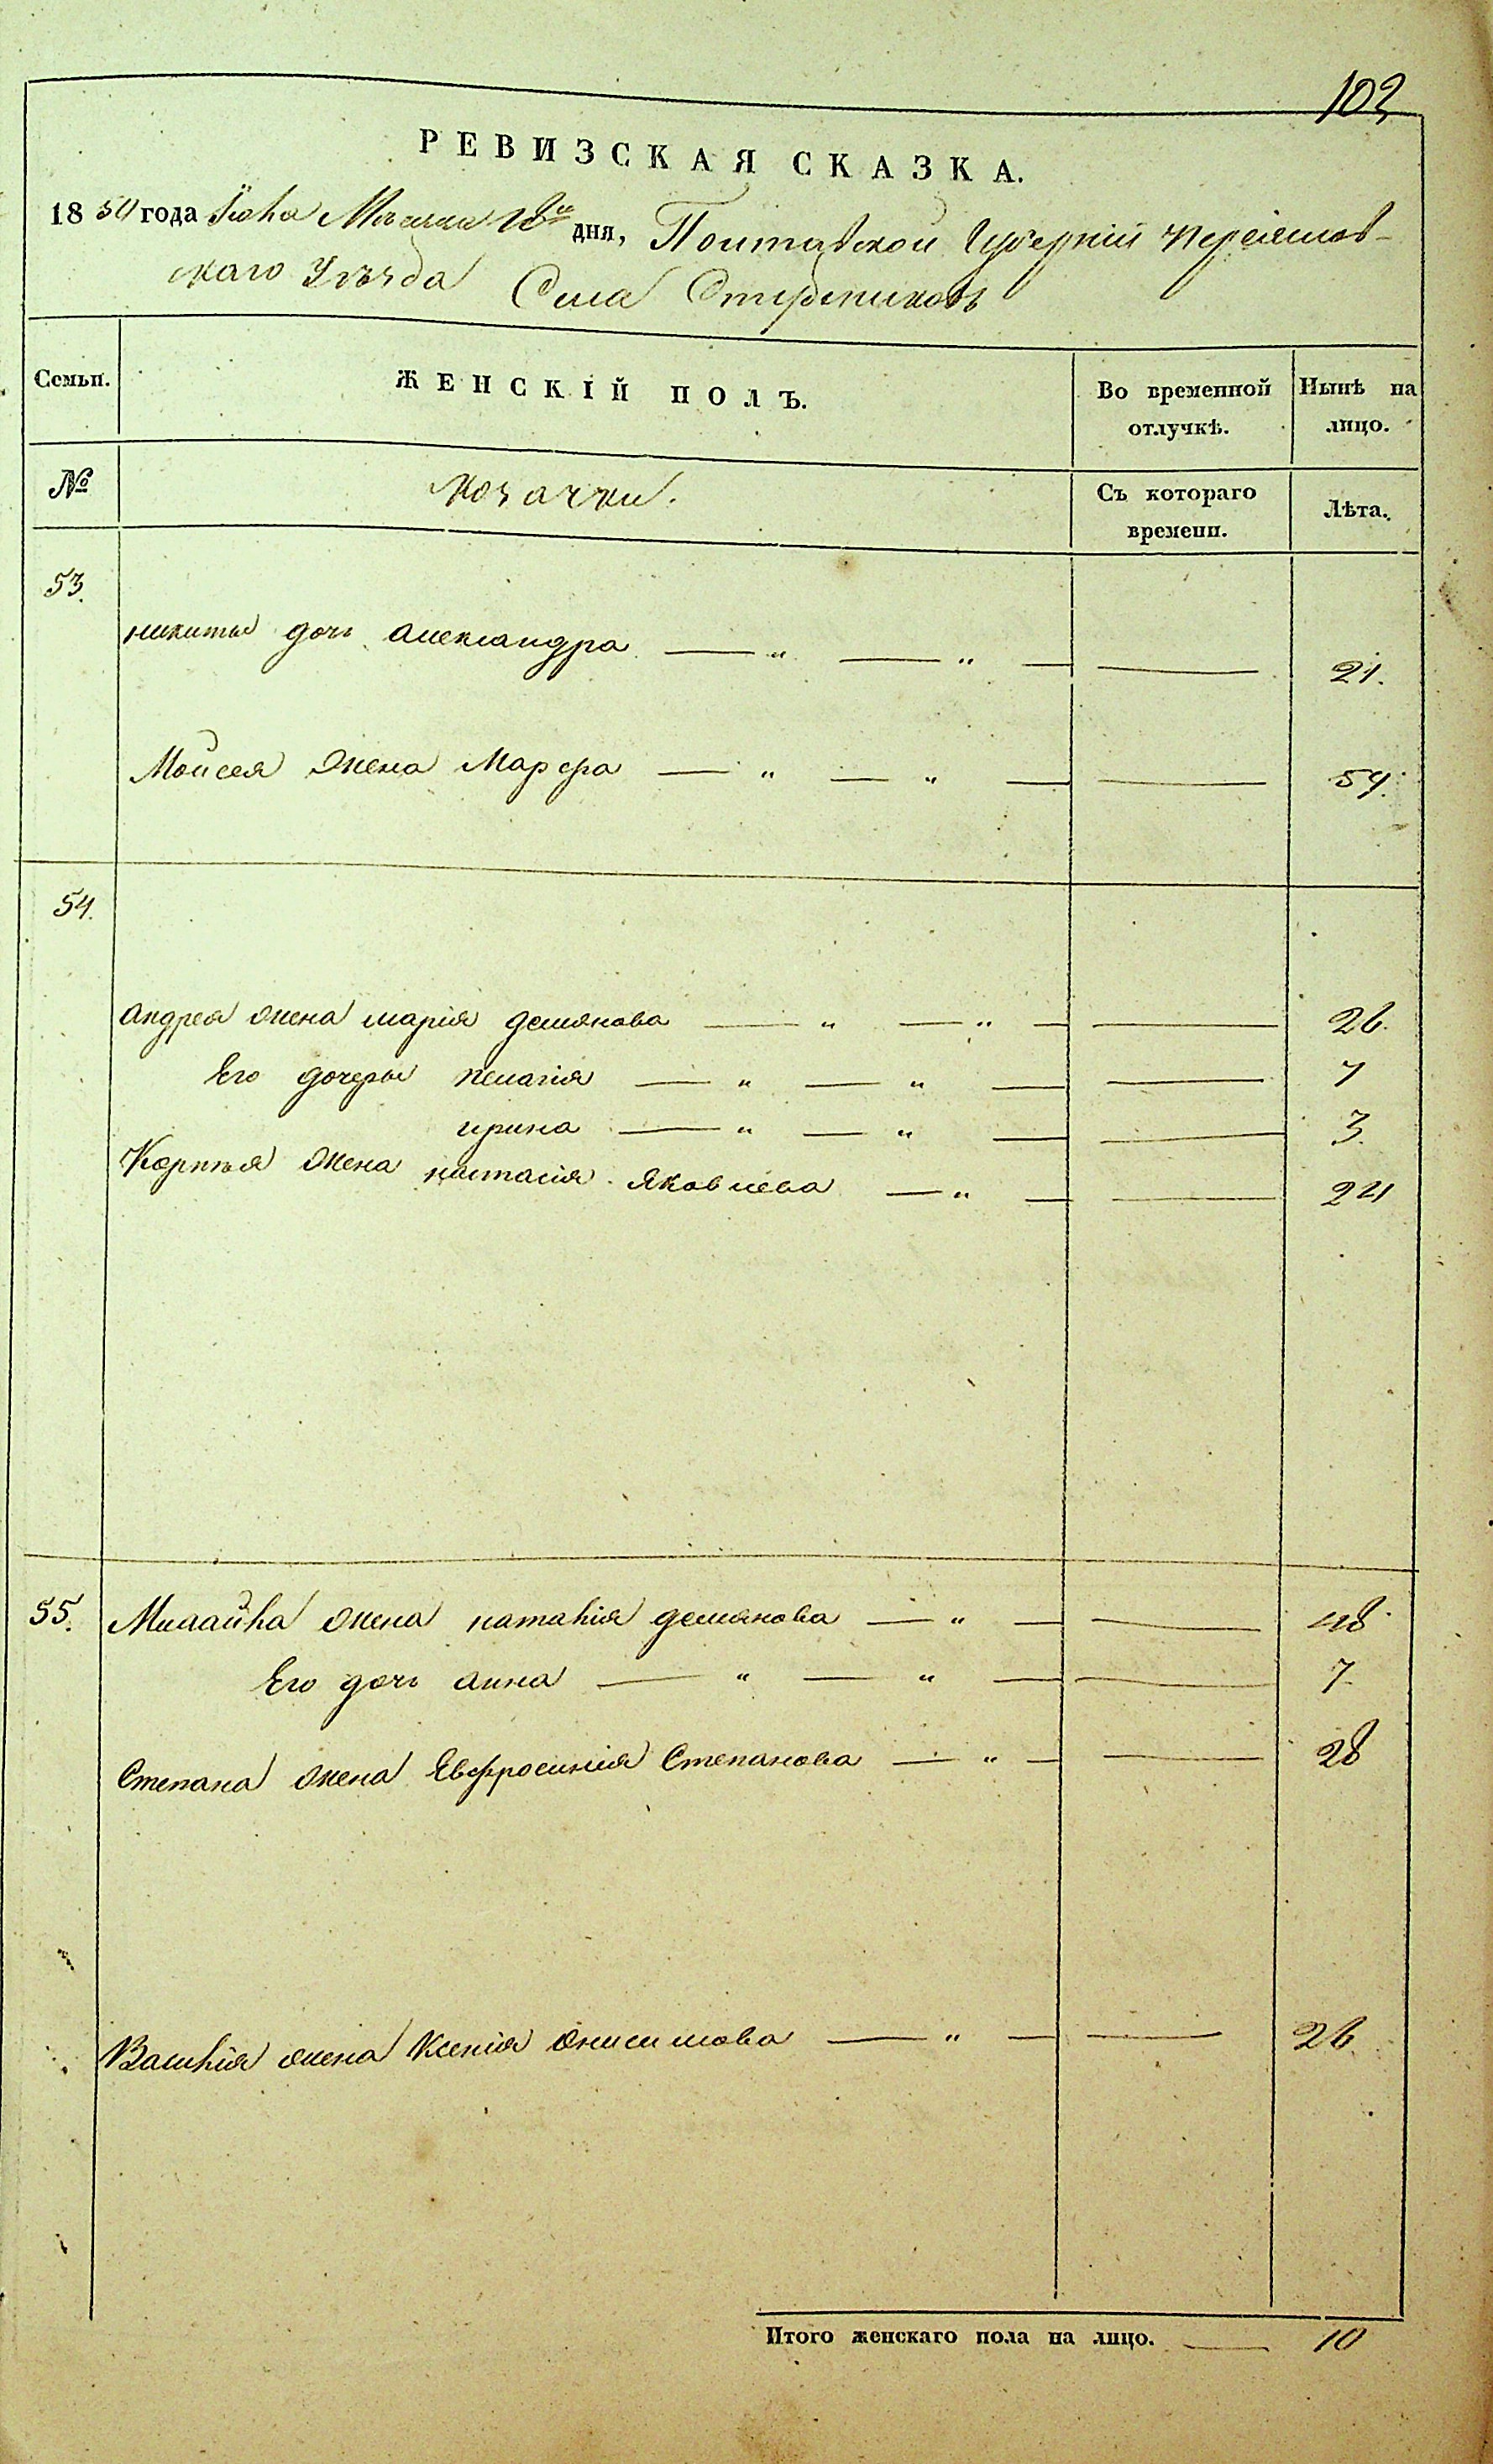 102
РЕВИЗСКАЯ СКАЗКА.
1850 года Іюня Месяца 18го дня, Полтавской Губерніи Переяслов-
скаго Уѣзда Села Стрепиковъ
Семьи. ЖЕНСКІЙ ПОЛЪ. Во временной отлучкѣ. Нынѣ на лицо.
№ Козачки. Съ котораго времени. Лѣта.
53.
никиты дочь александра — „ — „ — — 21.
Мойсея жена Марфа — „ — „ — — 54.
54.
андрея жена марія демянова — „ — „ — — 26.
Его дочеры пелагія — „ — „ — — 7
ирина — „ — „ — — 3.
Корнѣя жена настасія яковлева — „ — — 24
55. Михайла жена наталія демянова — „ — — 48
Его дочь анна — „ — „ — — 7.
Степана жена Евфросинія Степанова — „ — — 28
Василія жена Ксенія Онисимова — „ — — 26.
Итого женскаго пола на лицо. — 10